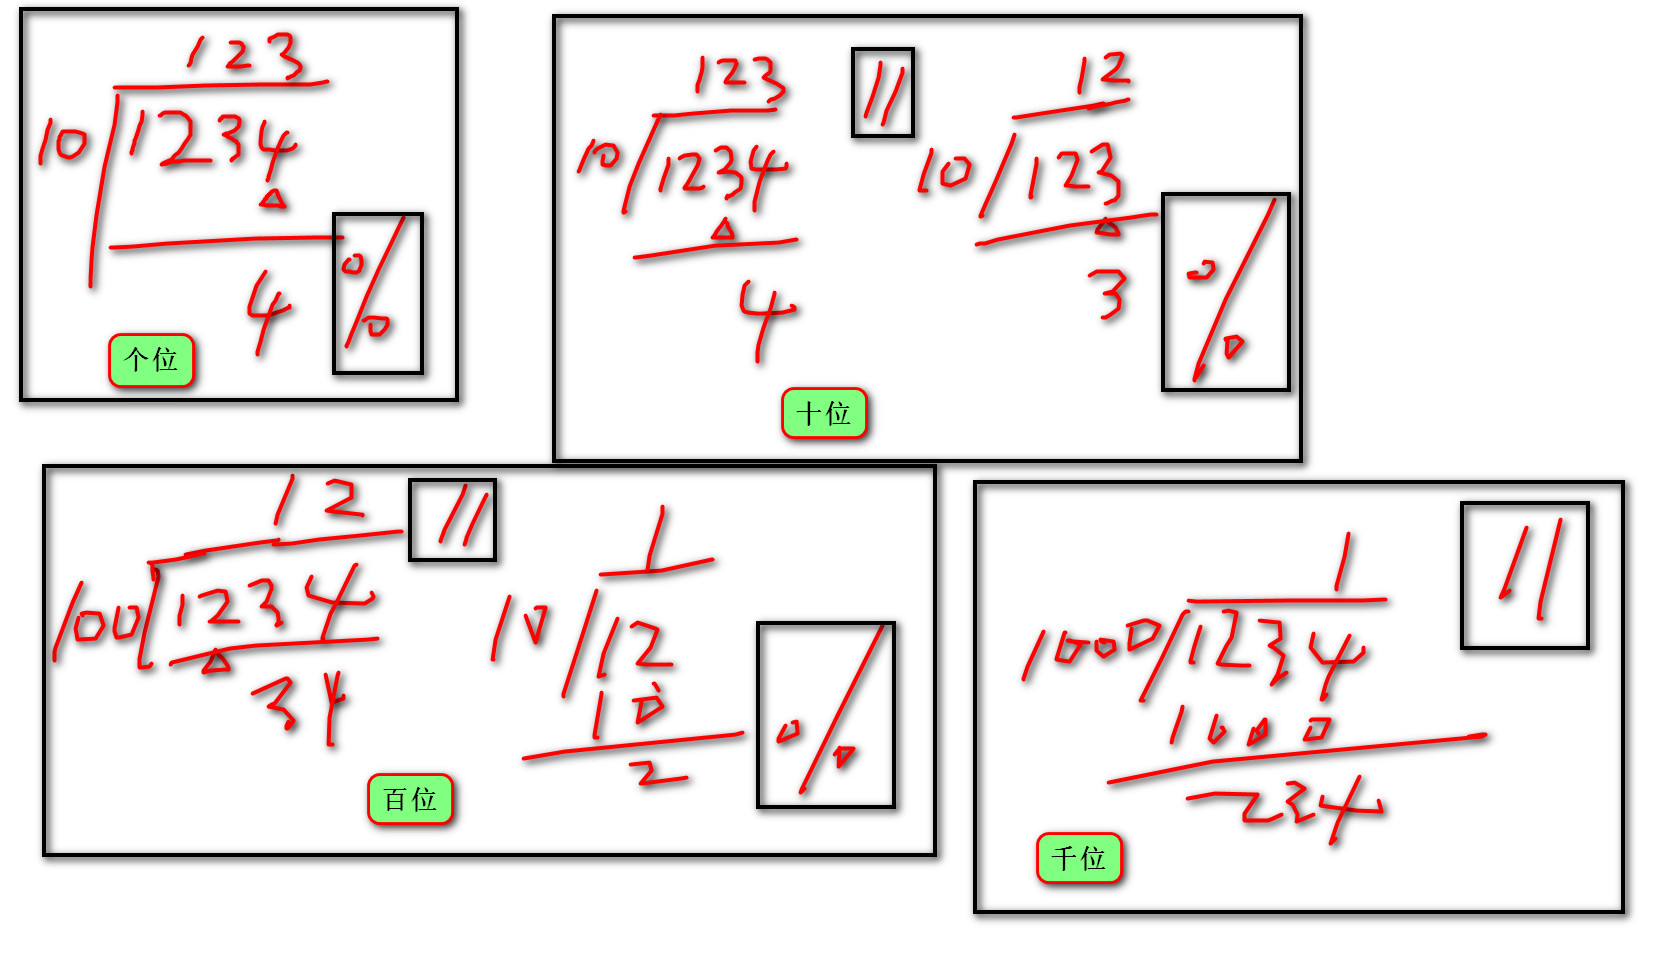 123
10 1234
4 %
个位
123 //
10 1234
4
12
10 123
3 %
十位
12 //
100 1234
34
1
10 12
10
2 %
百位
1 //
1000 1234
1000
234
千位